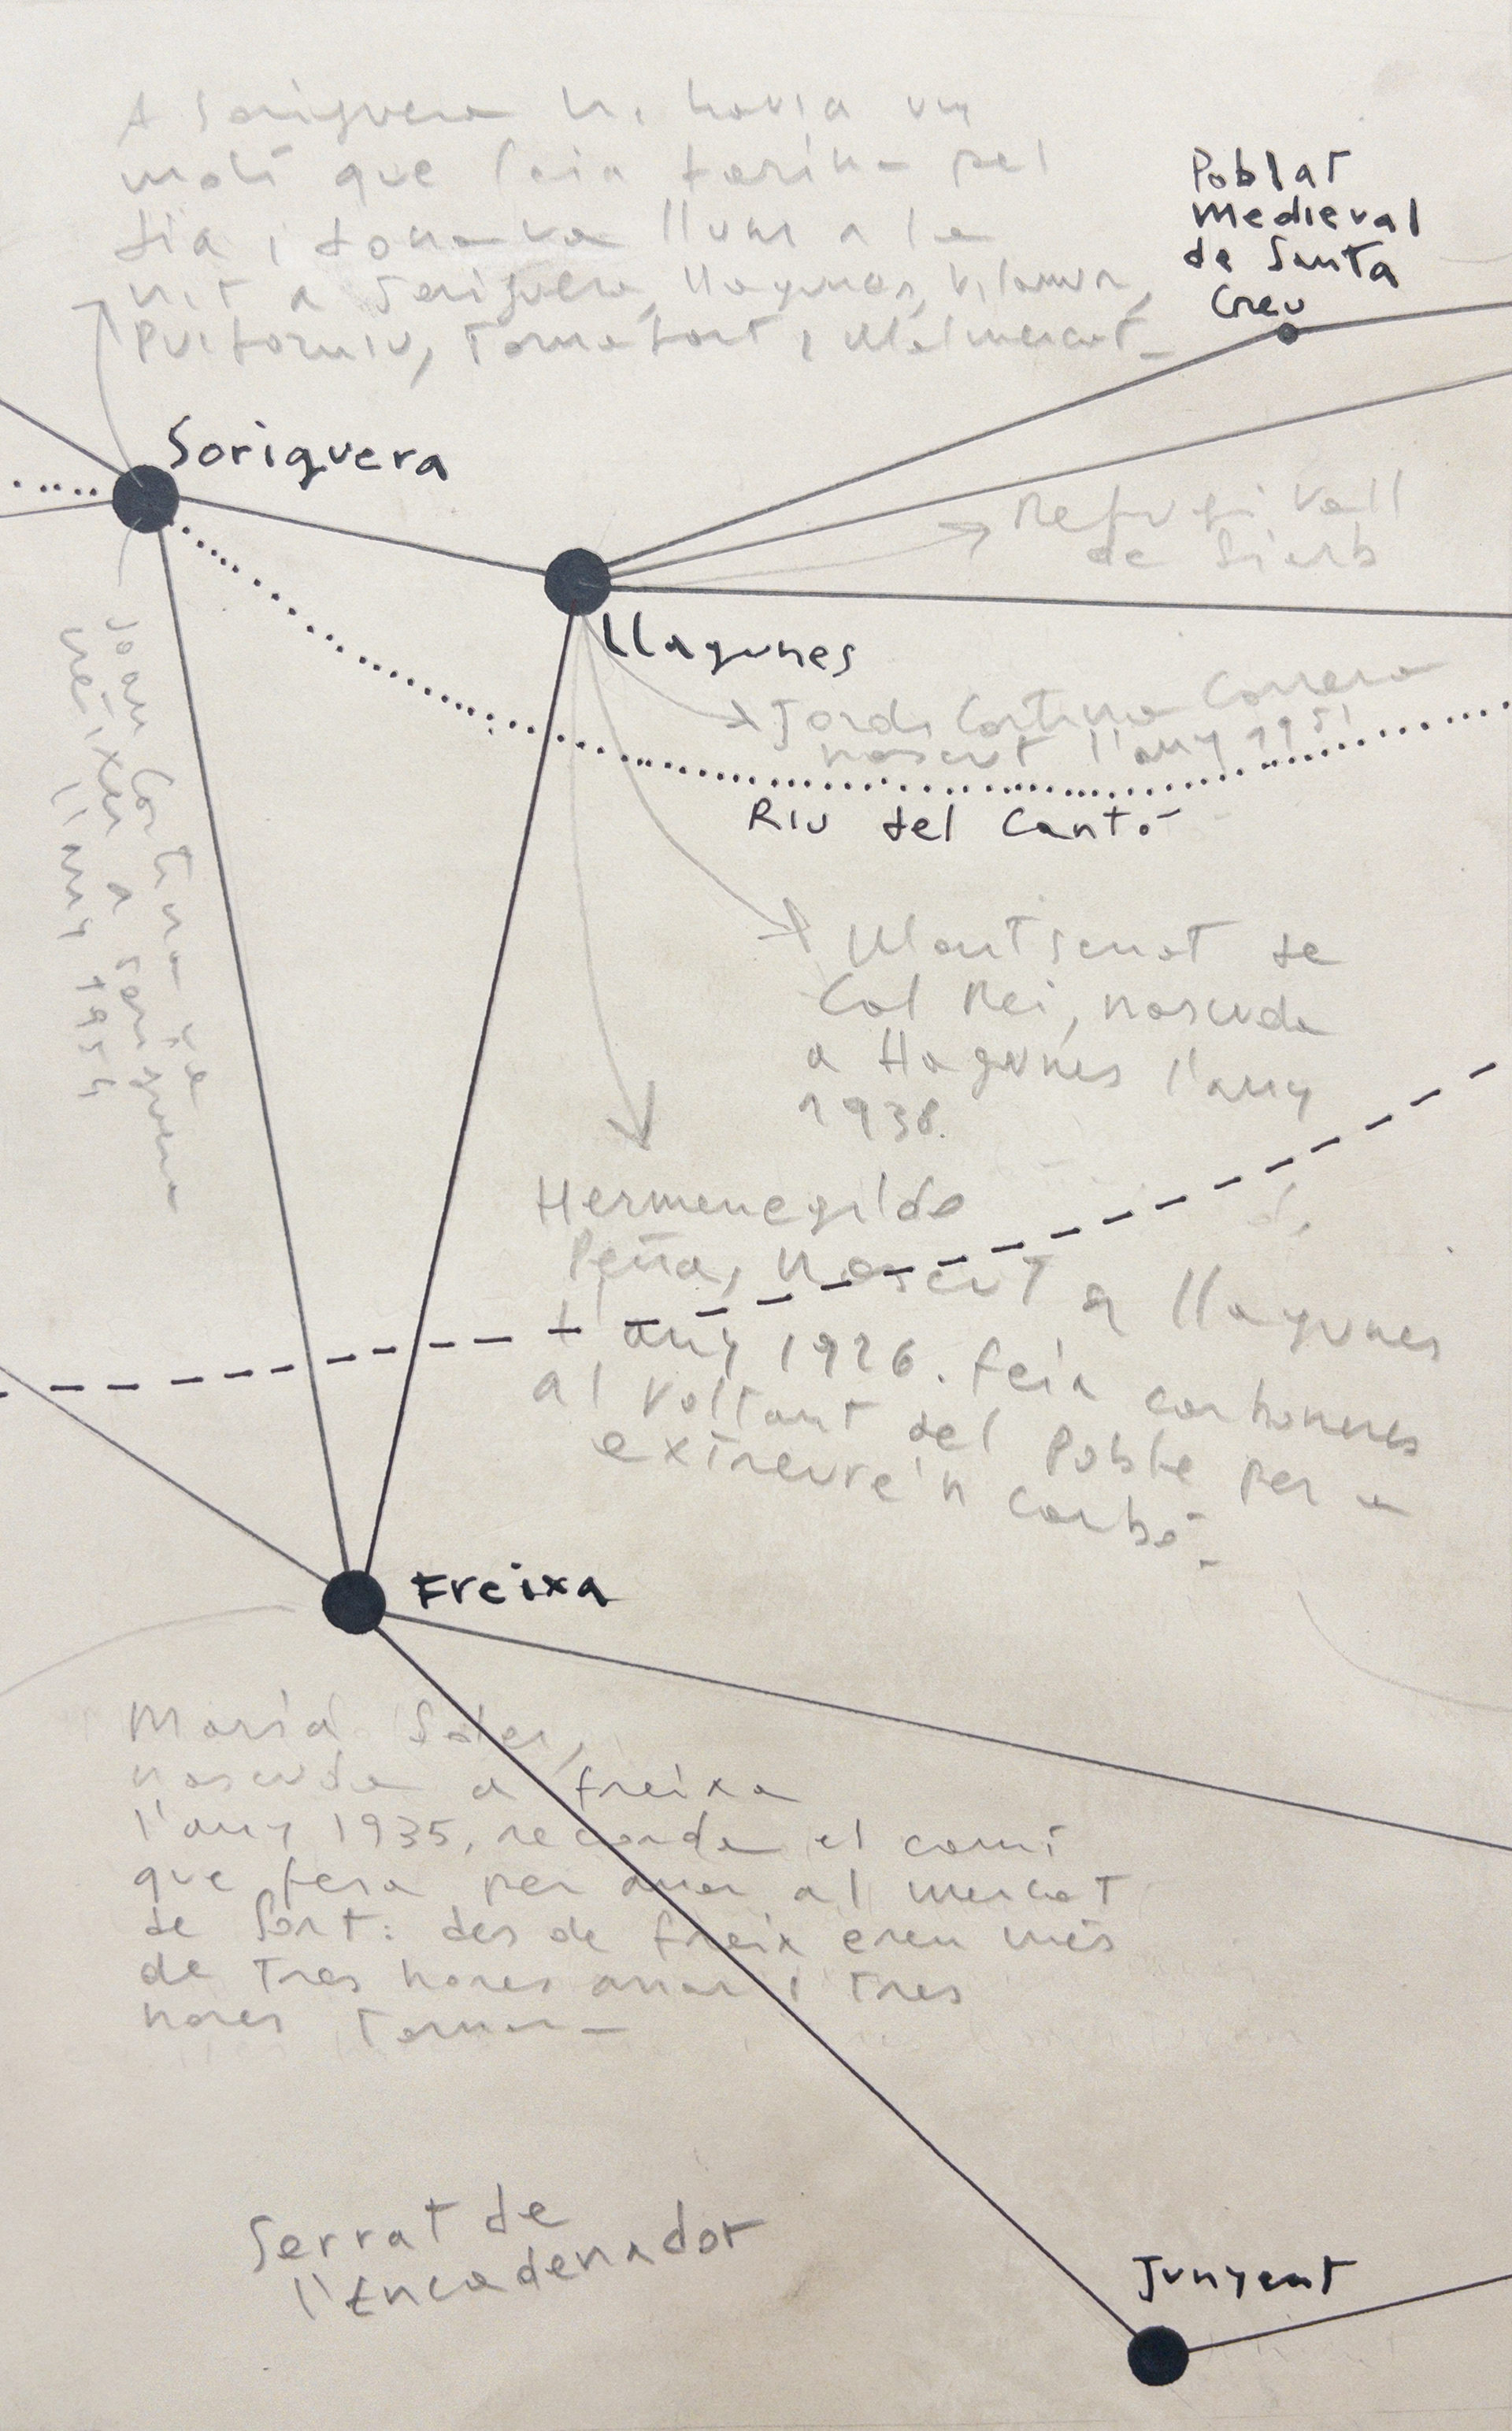 A Soriguera hi havia un
molí que feia farina pel
dia i donava llum a la
nit a Soriguera, Llagunes, Vilamur,
Puiforniu, Tornafort i Malmercat.
Poblat
Medieval
de Santa
Creu
Soriguera
Refugi Vall
de Siarb
Llagunes
Jordi Cortina Carrera
nascut l'any 1951
Riu del Cantó
Joan Cortina va
néixer a Soriguera
l'any
Montserrat de
Cal Rei, nascuda
a Llagunes l'any
1938.
Hermenegildo
Peña, nascut a Llagunes
l'any 1926. Feia carboneres
al voltant del poble per a
extreure'n carbó.
Freixa
Maria Soler,
nascuda a Freixa
l'any 1935, recorda el camí
que feia per anar al mercat
de Sort: des de Freix eren més
de tres hores anar i tres
hores tornar.
Serrat de
l'Encadenador
Junyent